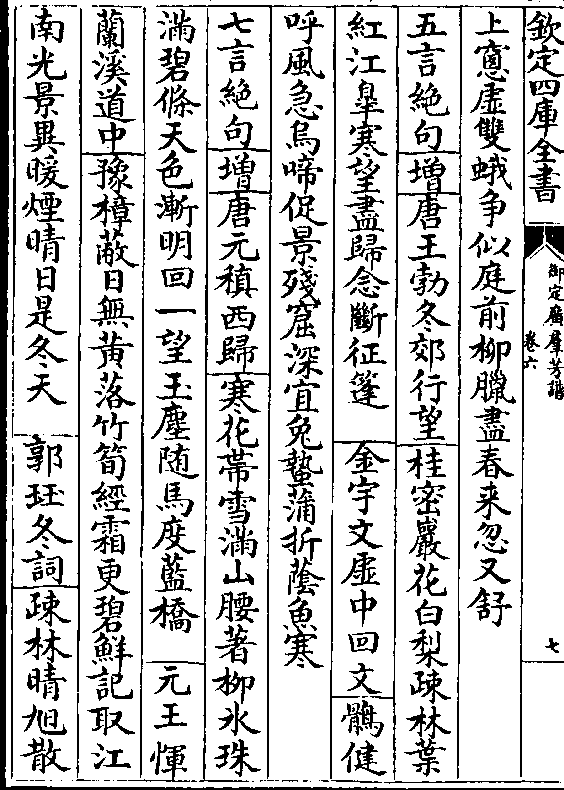 欽定四庫全書
御定廣群芳譜
卷六
七
上窻虛雙蛾争似庭前柳臘盡春来忽又舒
五言絶句増唐王勃冬郊行望桂密巖花白梨疎林葉
紅江臯寒望盡歸念斷征篷　金宇文虛中回文鶻健
呼風急烏啼促景殘窟深宜兔蟄蒲折蔭魚寒
七言絶句増唐元稹西歸寒花帶雪滿山腰著柳氷珠
滿碧條天色漸明回一望玉塵随馬度藍橋　元王惲
蘭溪道中豫樟蔽日無黄落竹筍經霜更碧鮮記取江
南光景異暖煙晴日是冬天　郭珏冬詞疎林晴旭散